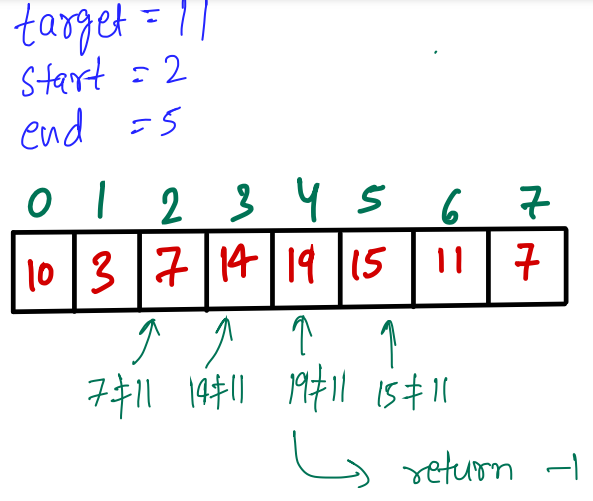 target = 11
start = 2
end = 5
0 1 2 3 4 5 6 7
10 3 7 14 19 15 11 7
7≠11 14≠11 19≠11 15≠11
return -1